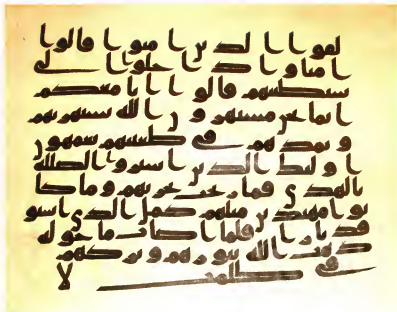 لقوا الذين امنوا قالوا
امنا واذا خلوا الى
شيطينهم قالوا انا معكم
انما نحن مستهزون الله يستهزى بهم
ويمدهم في طغينهم يعمهون
اولئك الذين اشتروا الضللة
بالهدى فما ربحت تجرتهم وما كا
نوا مهتدين مثلهم كمثل الذي استو
قد نارا فلما اضات ما حوله
ذهب الله بنورهم وتركهم
في ظلمت لا